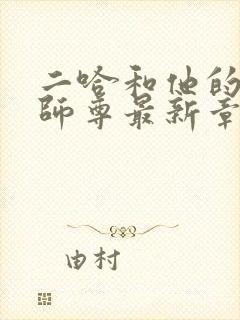 二哈和他的
師尊最新章
由村